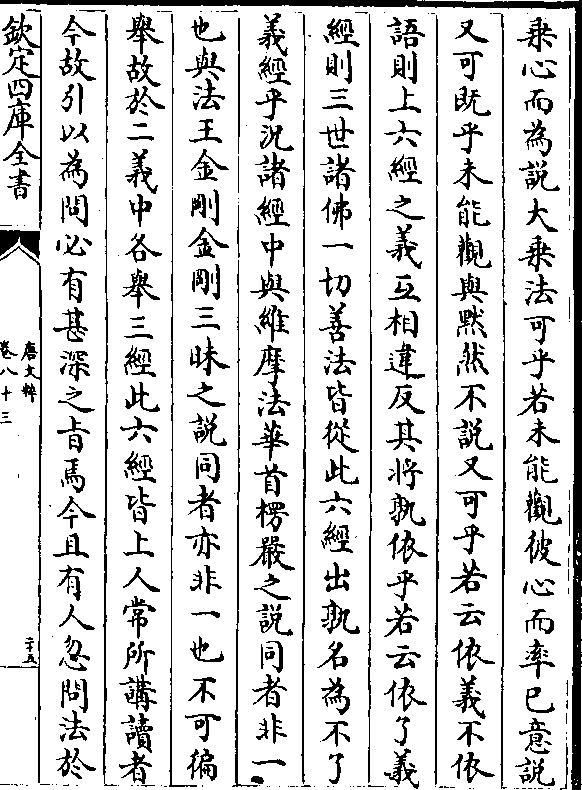 乗心而為説大乗法可乎若未能觀彼心而率已意説
又可既乎未能觀與黙然不説又可乎若云依義不依
語則上六經之義互相違反其將孰依乎若云依了義
經則三世諸佛一切善法皆從此六經出孰名為不了
義經乎況諸經中與維摩法華首楞嚴之説同者非一
也與法王金剛金剛三昧之説同者亦非一也不可徧
舉故於二義中各舉三經此六經皆上人常所講讀者
今故引以為問必有甚深之旨焉今且有人忽問法於
欽定四庫全書
唐文粹
卷八十三
二十五